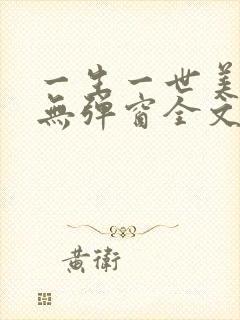 一生一世美
無彈窗全文
黃衛